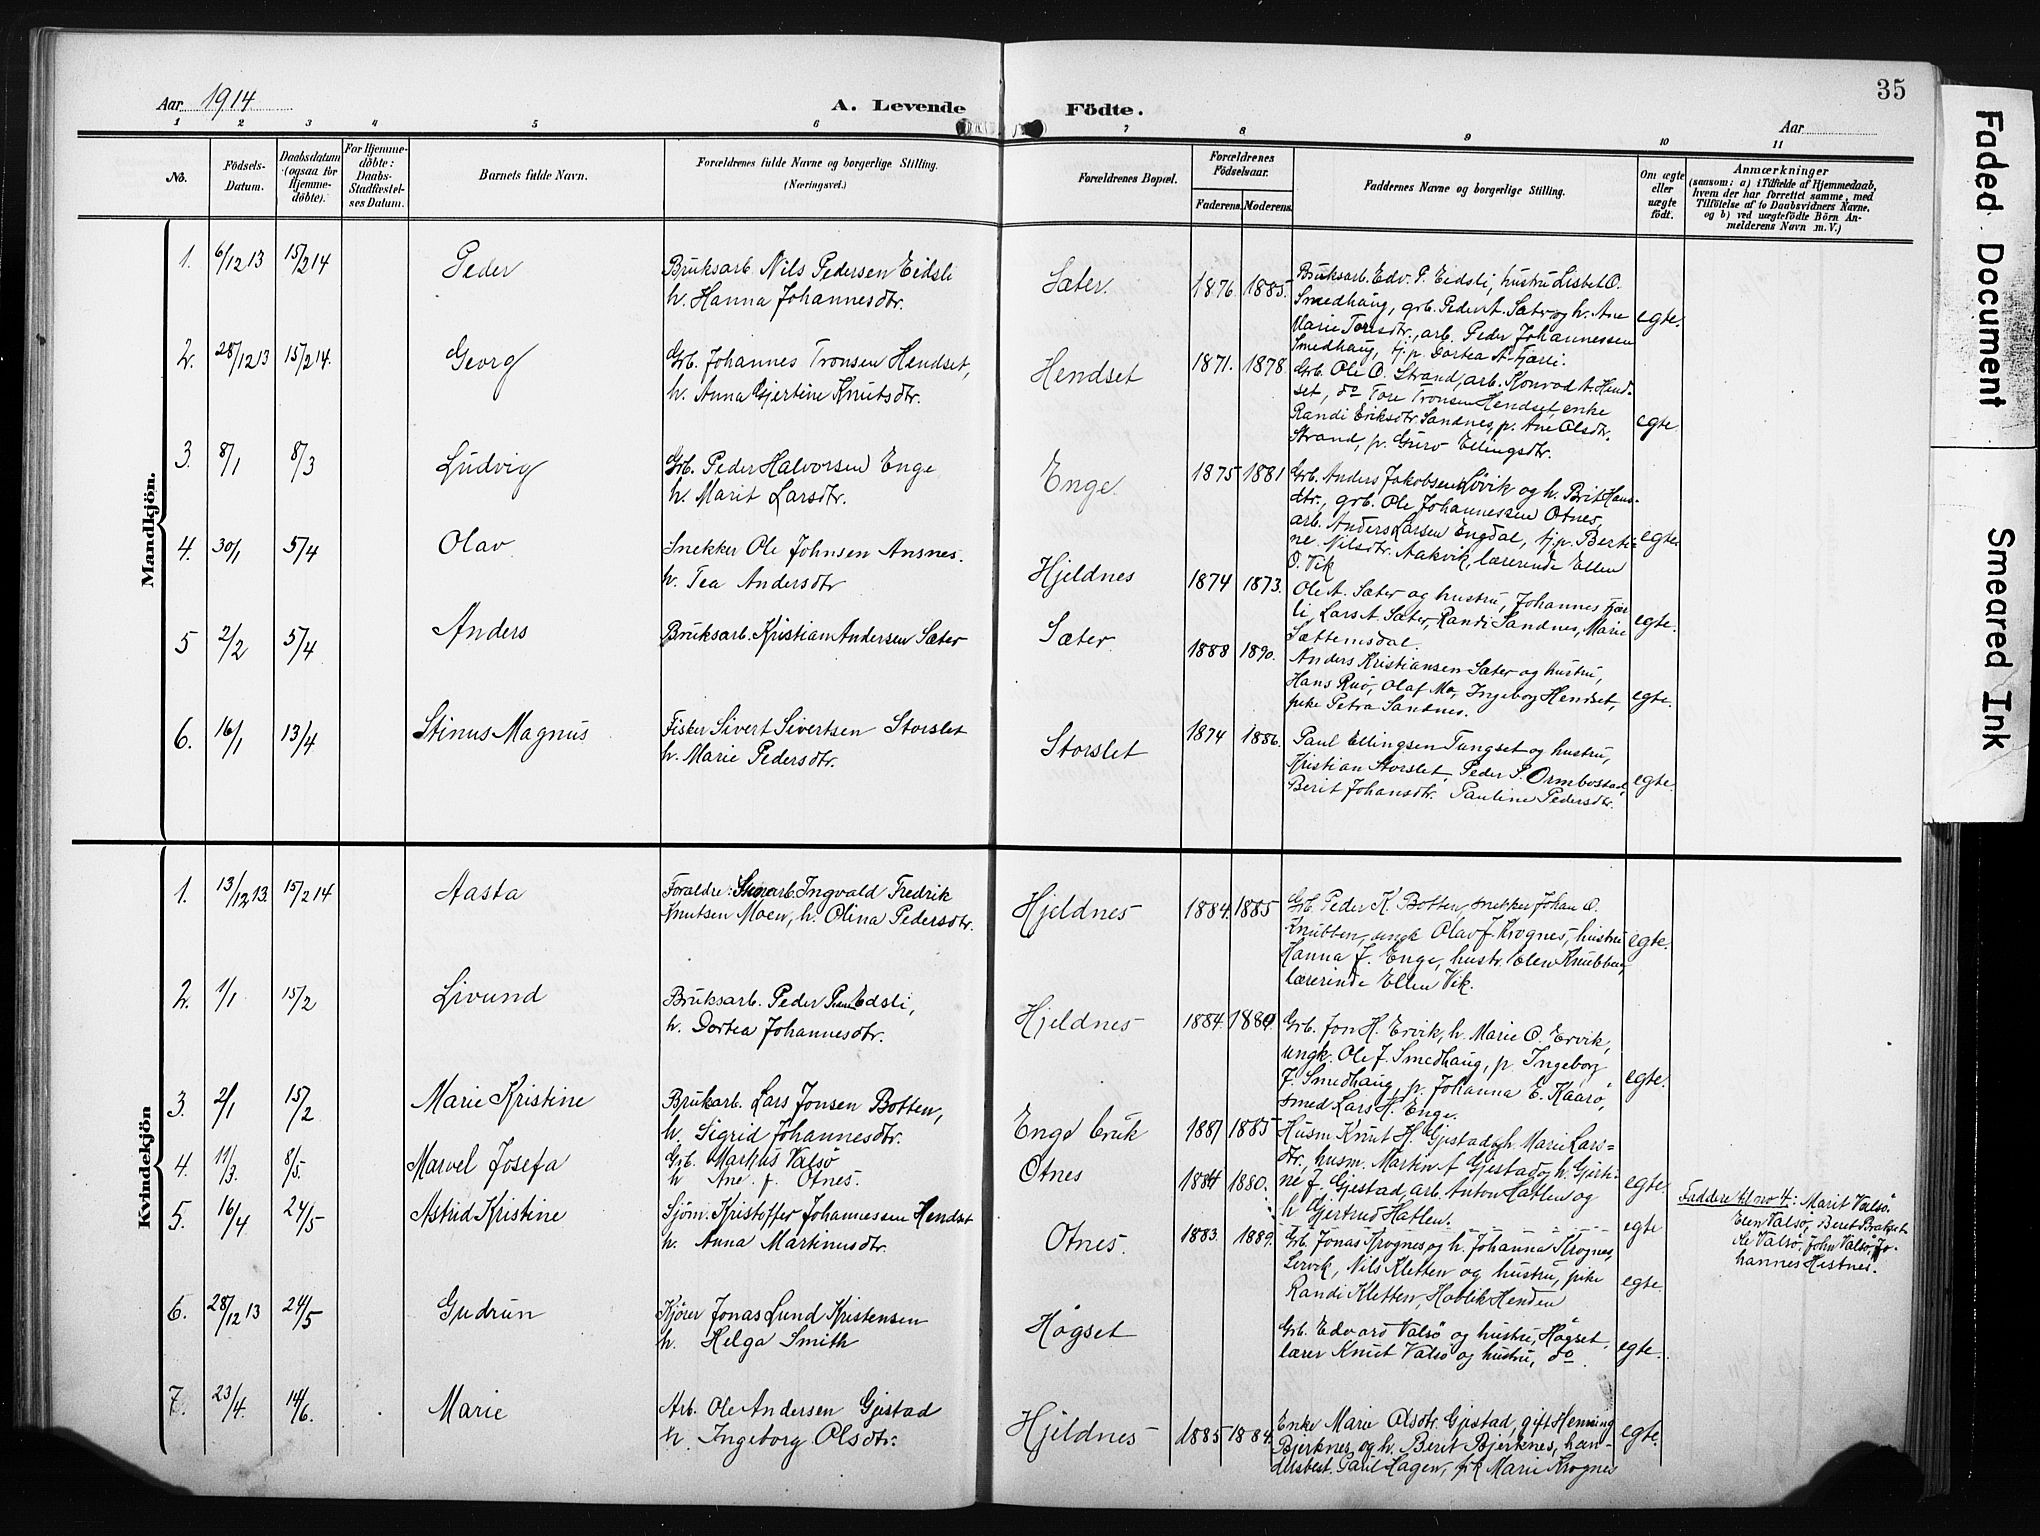 Aar 1914
A. Levende Födte.
35
Aar
1 2 3 4 5 6 7 8 9 10 11
No.
Födsels-Datum.
Daabsdatum (ogsaa for Hjemme-döbte).
For Hjemme-döbte: Daabs-Stadfæstel-ses Datum.
Barnets fulde Navn.
Forældrenes fulde Navne og borgerlige Stilling.
(Næringsvei.)
Forældrenes Bopæl.
Forældrenes Födselsaar.
Faderens. Moderens.
Faddernes Navne og borgerlige Stilling.
Om ægte eller uægte födt.
Anmærkninger
(saasom: a) i Tilfælde af Hjemmedaab,
hvem der har forrettet samme, med
Tilföielse af to Daabsvidners Navne,
og b) ved uægtefödte Börn An-
melderens Navn m. V.)
Mandkjön.
1. 6/12 13 15/2 14 Peder
Bruksarb. Nils Pedersen Eidsli
h. Hanna Johannesdtr.
Sæter. 1876. 1885.
Bruksarb. Edv. P. Eidsli, hustru Lisbet O.
Smedhaug, grb. Peder A. Sæter og h. Ane
Marie Toresdtr., arb. Peder Johannessen
Smedhaug, tj.p. Dortea A. Fjærli.
egte.
2. 28/12 13 15/2 14. Georg
Grb. Johannes Tronsen Hendset,
h. Anna Gjertine Knutsdtr.
Hendset 1871. 1878.
Grb. Ole O. Strand, arb. Konrad A. Hend-
set, do Tore Tronsen Hendset, enke
Randi Eriksdtr. Sandnes, p. Ane Olsdtr.
Strand, p. Guro Ellingsdtr.
egte.
3. 8/1 8/3 Ludvig
Grb. Peder Halvorsen Enge
h. Marit Larsdtr.
Enge. 1875 1881
Grb. Anders Jakobsen Lövik og h. Brit Hans-
dtr., grb. Ole Johannessen Otnes,
arb. Anders Larsen Engdal, tj.p. Berti-
ne Nilsdtr. Aakvik, lærerinde Ellen
O. Vik
egte
4. 30/1 5/4 Olav
Snekker Ole Johnsen Ansnes.
h. Tea Andersdtr
Hjeldnes 1874 1873.
Ole A. Sæter og hustru, Johannes Fjær-
li, Lars A. Sæter, Randi Sandnes, Marie
Sættemsdal.
egte.
5 2/2 5/4 Anders
Bruksarb. Kristian Andersen Sæter
Sæter. 1888 1890.
Anders Kristiansen Sæter og hustru,
Hans Ruö, Olaf Mo, Ingeborg Hendset,
pike Petra Sandnes.
egte.
6. 16/1 13/4 Stinus Magnus
Fisker Sivert Sivertsen Storslet
h. Marie Pedersdtr.
Storslet 1874 1886.
Paul Ellingsen Tungset og hustru,
Kristian Storslet, Peder S. Ormbostad,
Berit Johansdtr. Pauline Pedersdtr.
egte.
Kvindekjön
1. 13/12 13. 15/2 14 Aasta
Foraldre: arb. Ingvald Fredrik
Knutsen Moen, h. Olina Pedersdtr.
Hjeldnes 1884. 1885
Grb. Peder K. Botten, snekker Johan O.
Knubben, ungk Olav J. Krognes, hustru
Hanna J. Enge, hustr. Elen Knubben,
lærerinde Ellen Vik.
egte.
2. 1/1 15/2 Livund
Bruksarb. Peder Eidsli,
h. Dortea Johannesdtr.
Hjeldnes 1884.
Grb. Jon H. Ervik, h. Marie O. Ervik,
ungk. Ole J. Smedhaug, p. Ingeborg
J. Smedhaug, p. Johanna E. Kaarö,
smed Lars H. Enge.
egte.
3. 2/1 15/2 Marie Kristine
Bruksarb. Lars Jonsen Botten,
h. Sigrid Johannesdtr.
Enge bruk 1881 1885
Husm Knut H. Gjestad og h Marie Lars-
dtr, husm. Martin A Gjestad og h. Gjerti-
ne J. Gjestad, arb. Anton Hatlen og
h Gjertrud Hatlen.
egte.
4. 11/3 8/5. Marvel Josefa
Grb. Markus Valsö
h Ane. f. Otnes.
Otnes 1884 1880.
egte
5. 16/4 24/5 Astrid Kristine
Sjöm. Kristoffer Johannessen Hendset
h. Anna Martinusdtr.
Otnes. 1883. 1889.
Grb. Jonas Krognes og h. Johanna Krognes,
Lervik, Nils Kletten og hustru, pike
Randi Kletten, Henden
egte.
Faddere til no 4: Marit Valsö.
Elen Valsö, Beret Brakset
Ole Valsö, John Valsö, Jo-
hannes Hestnes.
6. 28/12 13 24/5 Gudrun
Kjörer Jonas Lund Kristensen
h. Helga Smith
Högset
Grb. Edvard Valsö og hustru, Högset.
lærer Knut Valsö og hustru, do.
egte.
7. 23/4. 14/6. Marie
Arb. Ole Andersen Gjestad
h. Ingeborg Olsdtr.
Hjeldnes 1885 1884.
Enke Marie Olsdtr. Gjestad, gift Henning
Bjerknes og h. Berit Bjerknes, han-
delsbest. Paul Hagen, pk Marie Krognes
egte.
Faded Document
Smeared Ink